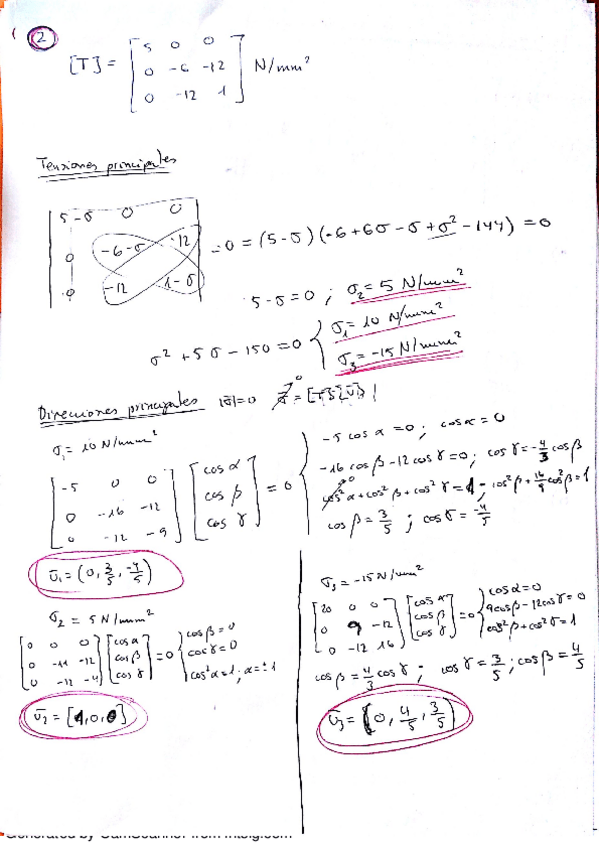 2
[T] = [ 5 0 0
0 -6 -12
0 -12 1 ] N/mm²
Tensiones principales
| 5-σ 0 0 |
| 0 -6-σ -12 | = 0 = (5-σ)(-6+6σ-σ+σ²-144) = 0
| 0 -12 1-σ |
5-σ=0 ; σ₂ = 5 N/mm²
σ² + 5σ - 150 = 0 { σ₁ = 10 N/mm²
σ₃ = -15 N/mm²
Direcciones principales |σ|=0
σ₁ = 10 N/mm²
[ -5 0 0
0 -16 -12
0 -12 -9 ] [ cos α
cos β
cos γ ] = 0 { -5 cos α = 0 ; cos α = 0
-16 cos β - 12 cos γ = 0 ; cos γ = -4/3 cos β
cos²α + cos²β + cos²γ = 1 - cos²β + 16/9 cos²β = 1
cos β = 3/5 ; cos γ = -4/5
ū₁ = (0, 3/5, -4/5)
σ₂ = 5 N/mm²
[ 0 0 0
0 -11 -12
0 -12 -4 ] [ cos α
cos β
cos γ ] = 0 { cos β = 0
cos γ = 0
cos²α = 1 ; α = ± 1
ū₂ = [1, 0, 0]
σ₃ = -15 N/mm²
[ 20 0 0
0 9 -12
0 -12 16 ] [ cos α
cos β
cos γ ] = 0 { cos α = 0
9cos β - 12cos γ = 0
cos²β + cos²γ = 1
cos β = 4/3 cos γ ; cos γ = 3/5 ; cos β = 4/5
ū₃ = (0, 4/5, 3/5)
Generated by CamScanner from intsig.com